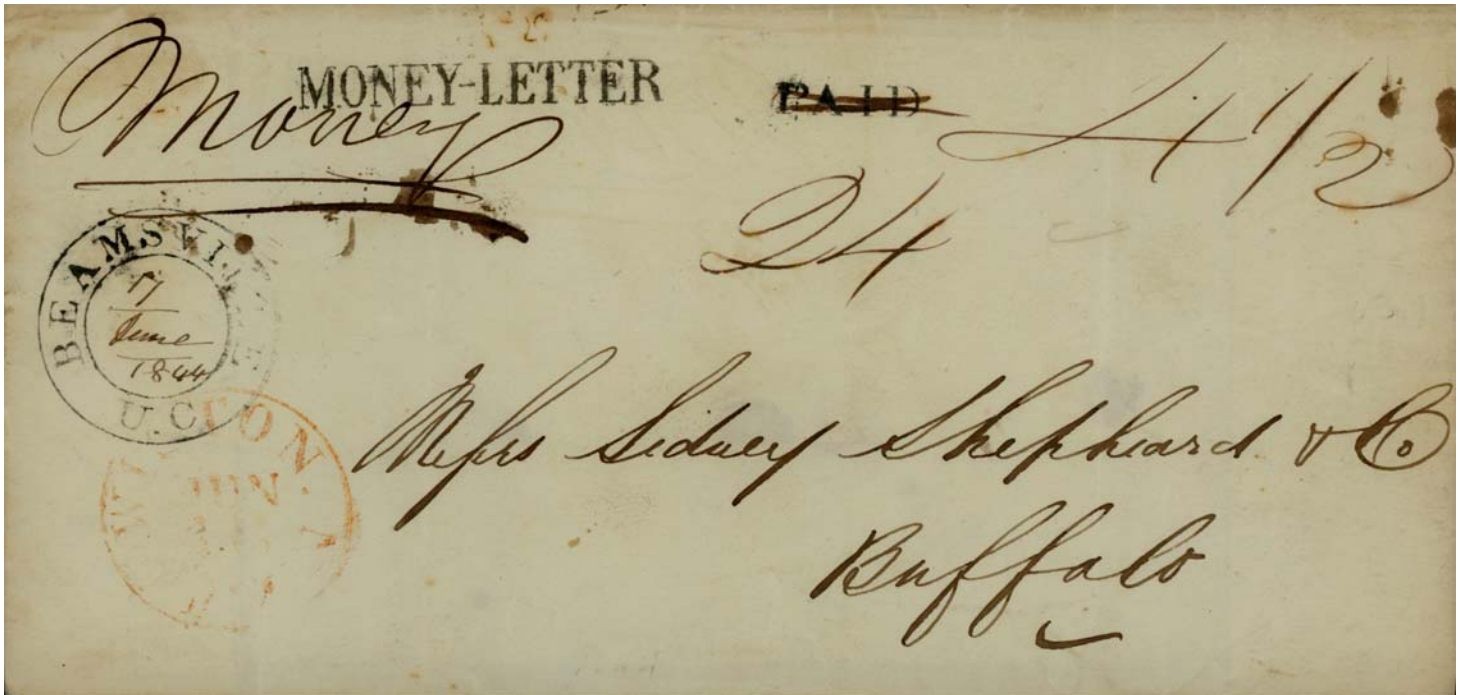 Money
MONEY-LETTER
PAID
4 1/2
24
BEAMSVILLE
U.C
17
June
1844
JUN
Messrs Sidney Shepheard & Co
Buffalo